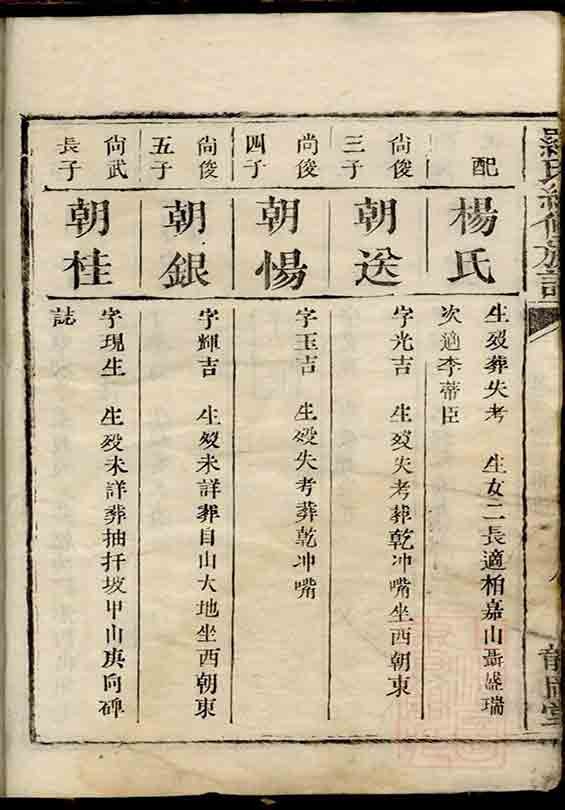 羅氏續修族譜
配
楊氏
生歿葬失考 生女二長適柏嘉山聶盛瑞
次適李蒂臣
尙俊
三子
朝送
字光吉 生歿失考葬乾冲嘴坐西朝東
尙俊
四子
朝惕
字玉吉 生歿失考葬乾冲嘴
尙俊
五子
朝銀
字輝吉 生歿未詳葬自山大地坐西朝東
尙武
長子
朝桂
字現生 生歿未詳葬抽扦坡甲山庚向碑
誌